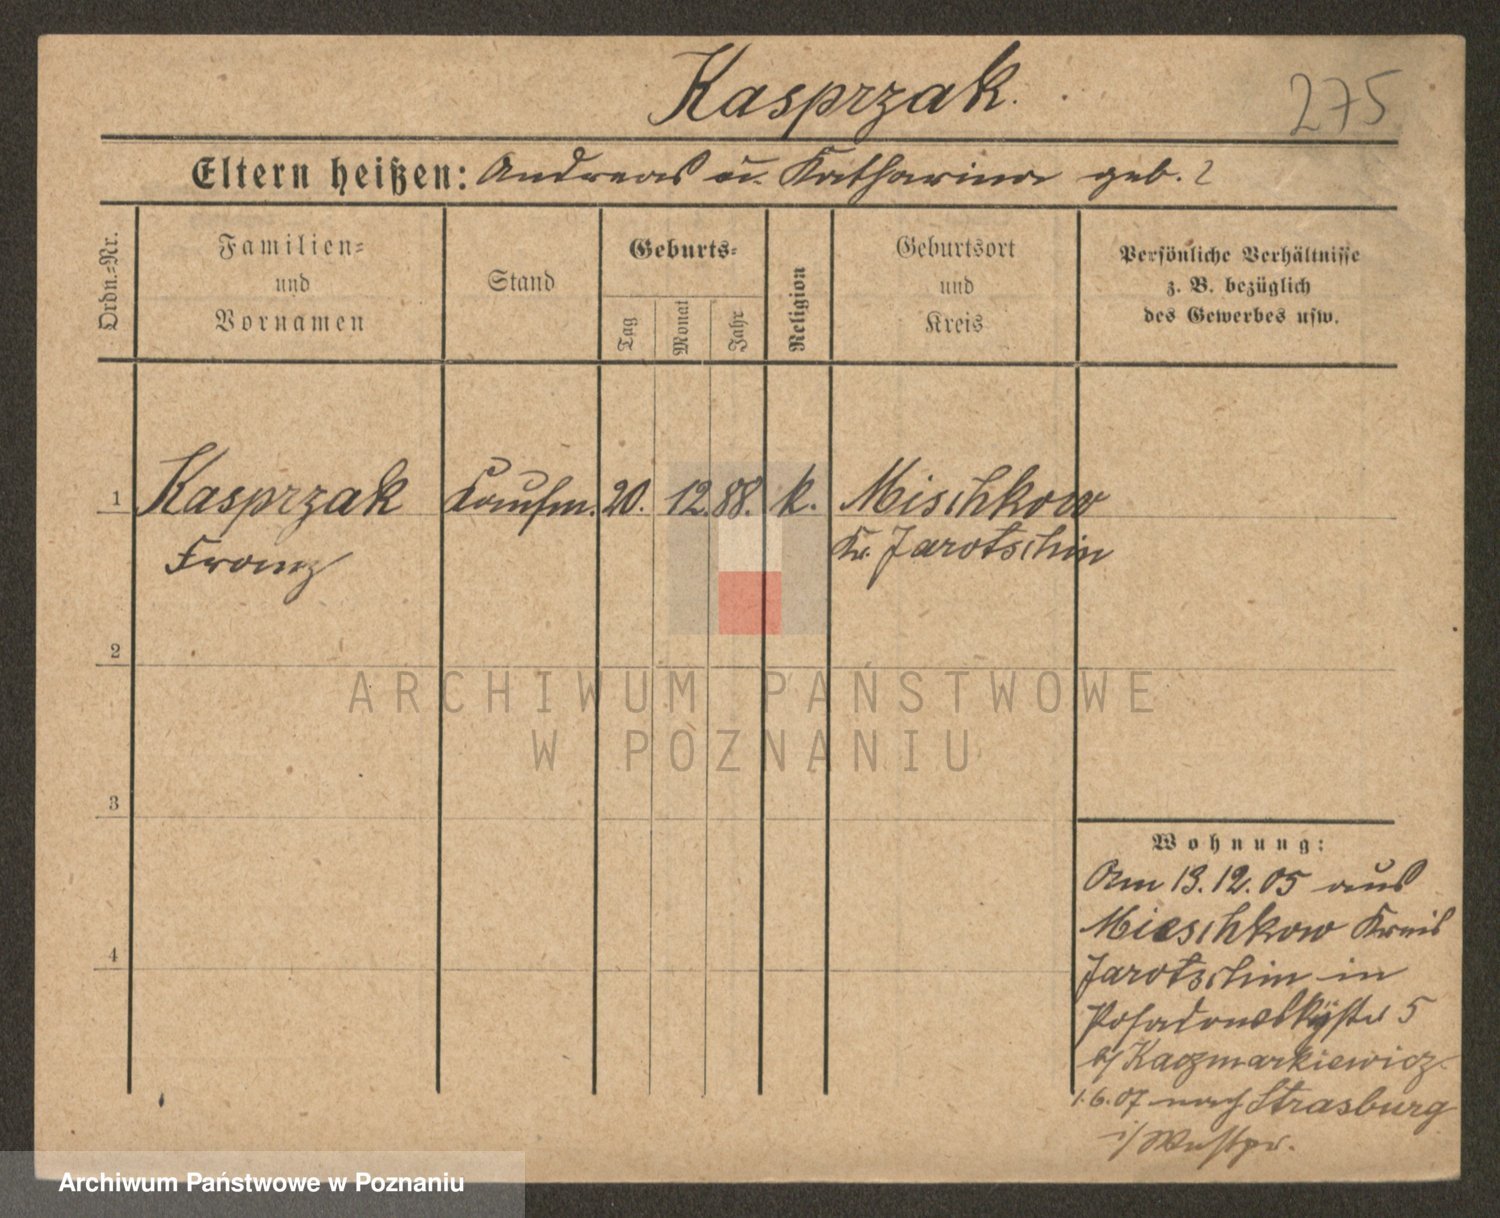 Kasprzak.
275
Eltern heißen: Andreas u. Katharina geb. ?
Ordn.-Nr.
Familien-
und
Vornamen
Stand
Geburts-
Tag
Monat
Jahr
Religion
Geburtsort
und
Kreis
Persönliche Verhältnisse
z. B. bezüglich
des Gewerbes usw.
1 Kasprzak Kaufm. 20. 12. 88. k. Mischkow
Franz Kr. Jarotschin
2
ARCHIWUM PAŃSTWOWE
W POZNANIU
3
Wohnung:
Am 13.12.05 aus
Mieschkow Kreis
4
Jarotschin in
Posadowskystr 5
b/ Kaczmarkiewicz
1.6.07 nach Strasburg
i/ Westpr.
Archiwum Państwowe w Poznaniu